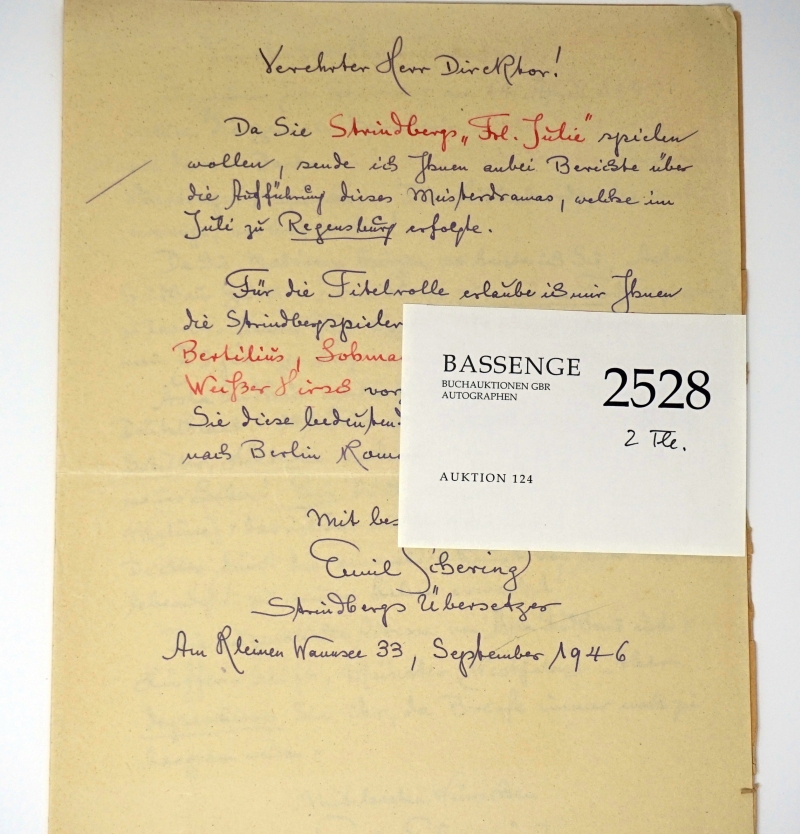 Verehrter Herr Direktor!
Da Sie Strindbergs „Frl. Julie" spielen
wollen, sende ich Ihnen anbei Berichte über
die Aufführung dieses Meisterdramas, welche im
Juli zu Regensburg erfolgte.
Für die Titelrolle erlaube ich mir Ihnen
die Strindbergspieler
Bertilius,
Weißer Hirsch vor
Sie diese bedeutend
nach Berlin
Mit bes
Emil Schering
Strindbergs Übersetzer
Am Kleinen Wannsee 33, September 1946
BASSENGE
BUCHAUKTIONEN GBR
AUTOGRAPHEN
2528
2 Tle.
AUKTION 124